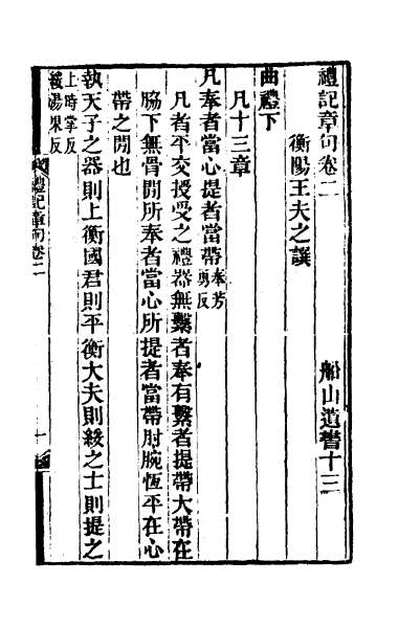 禮記章句卷二 船山遺書十三
衡陽王夫之譔
曲禮下
凡十三章
凡奉者當心提者當帶奉芳勇反
凡者平交授受之禮器無繫者奉有繫者提帶大帶在
脇下無骨閒所奉者當心所提者當帶肘腕恆平在心
帶之閒也
執天子之器則上衡國君則平衡大夫則綏之士則提之
上時掌反綏湯果反
禮記章句卷二 一